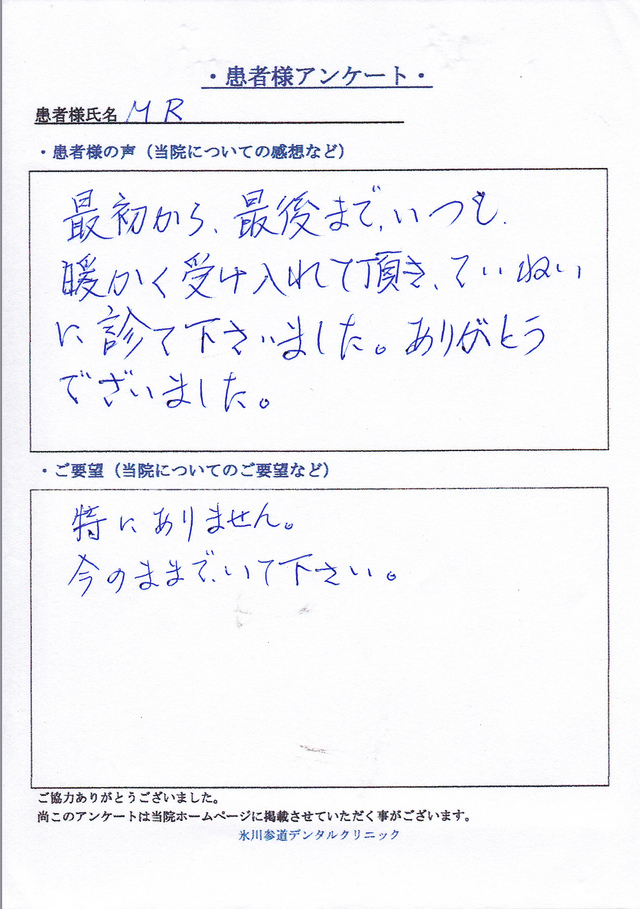 ・患者様アンケート・
患者様氏名 M R
・患者様の声（当院についての感想など）
最初から、最後まで、いつも、
暖かく受け入れて頂き、ていねい
に診て下さいました。ありがとう
でざいました。
・ご要望（当院についてのご要望など）
特にありません。
今のままで、いて下さい。
ご協力ありがとうございました。
尚このアンケートは当院ホームページに掲載させていただく事がございます。
氷川参道デンタルクリニック